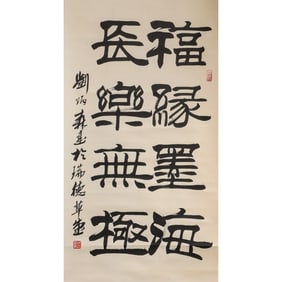 福緣墨海
長樂無極
劉炳森書於瑞德草堂